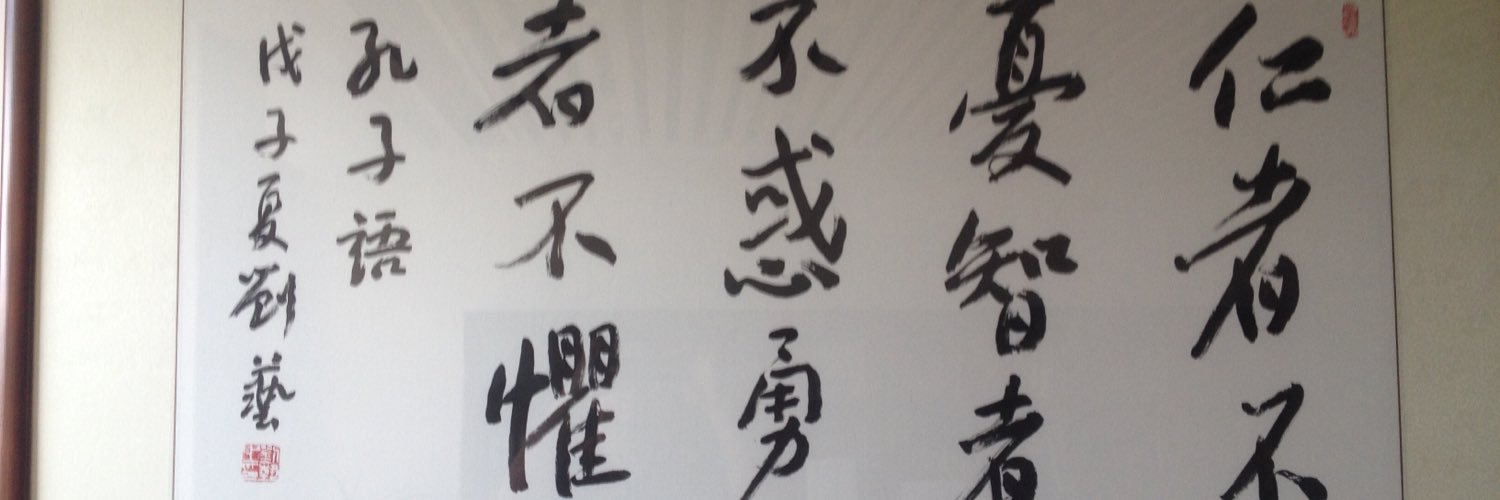 仁者不
憂智者
不惑勇
者不懼
孔子語
戊子夏劉藝